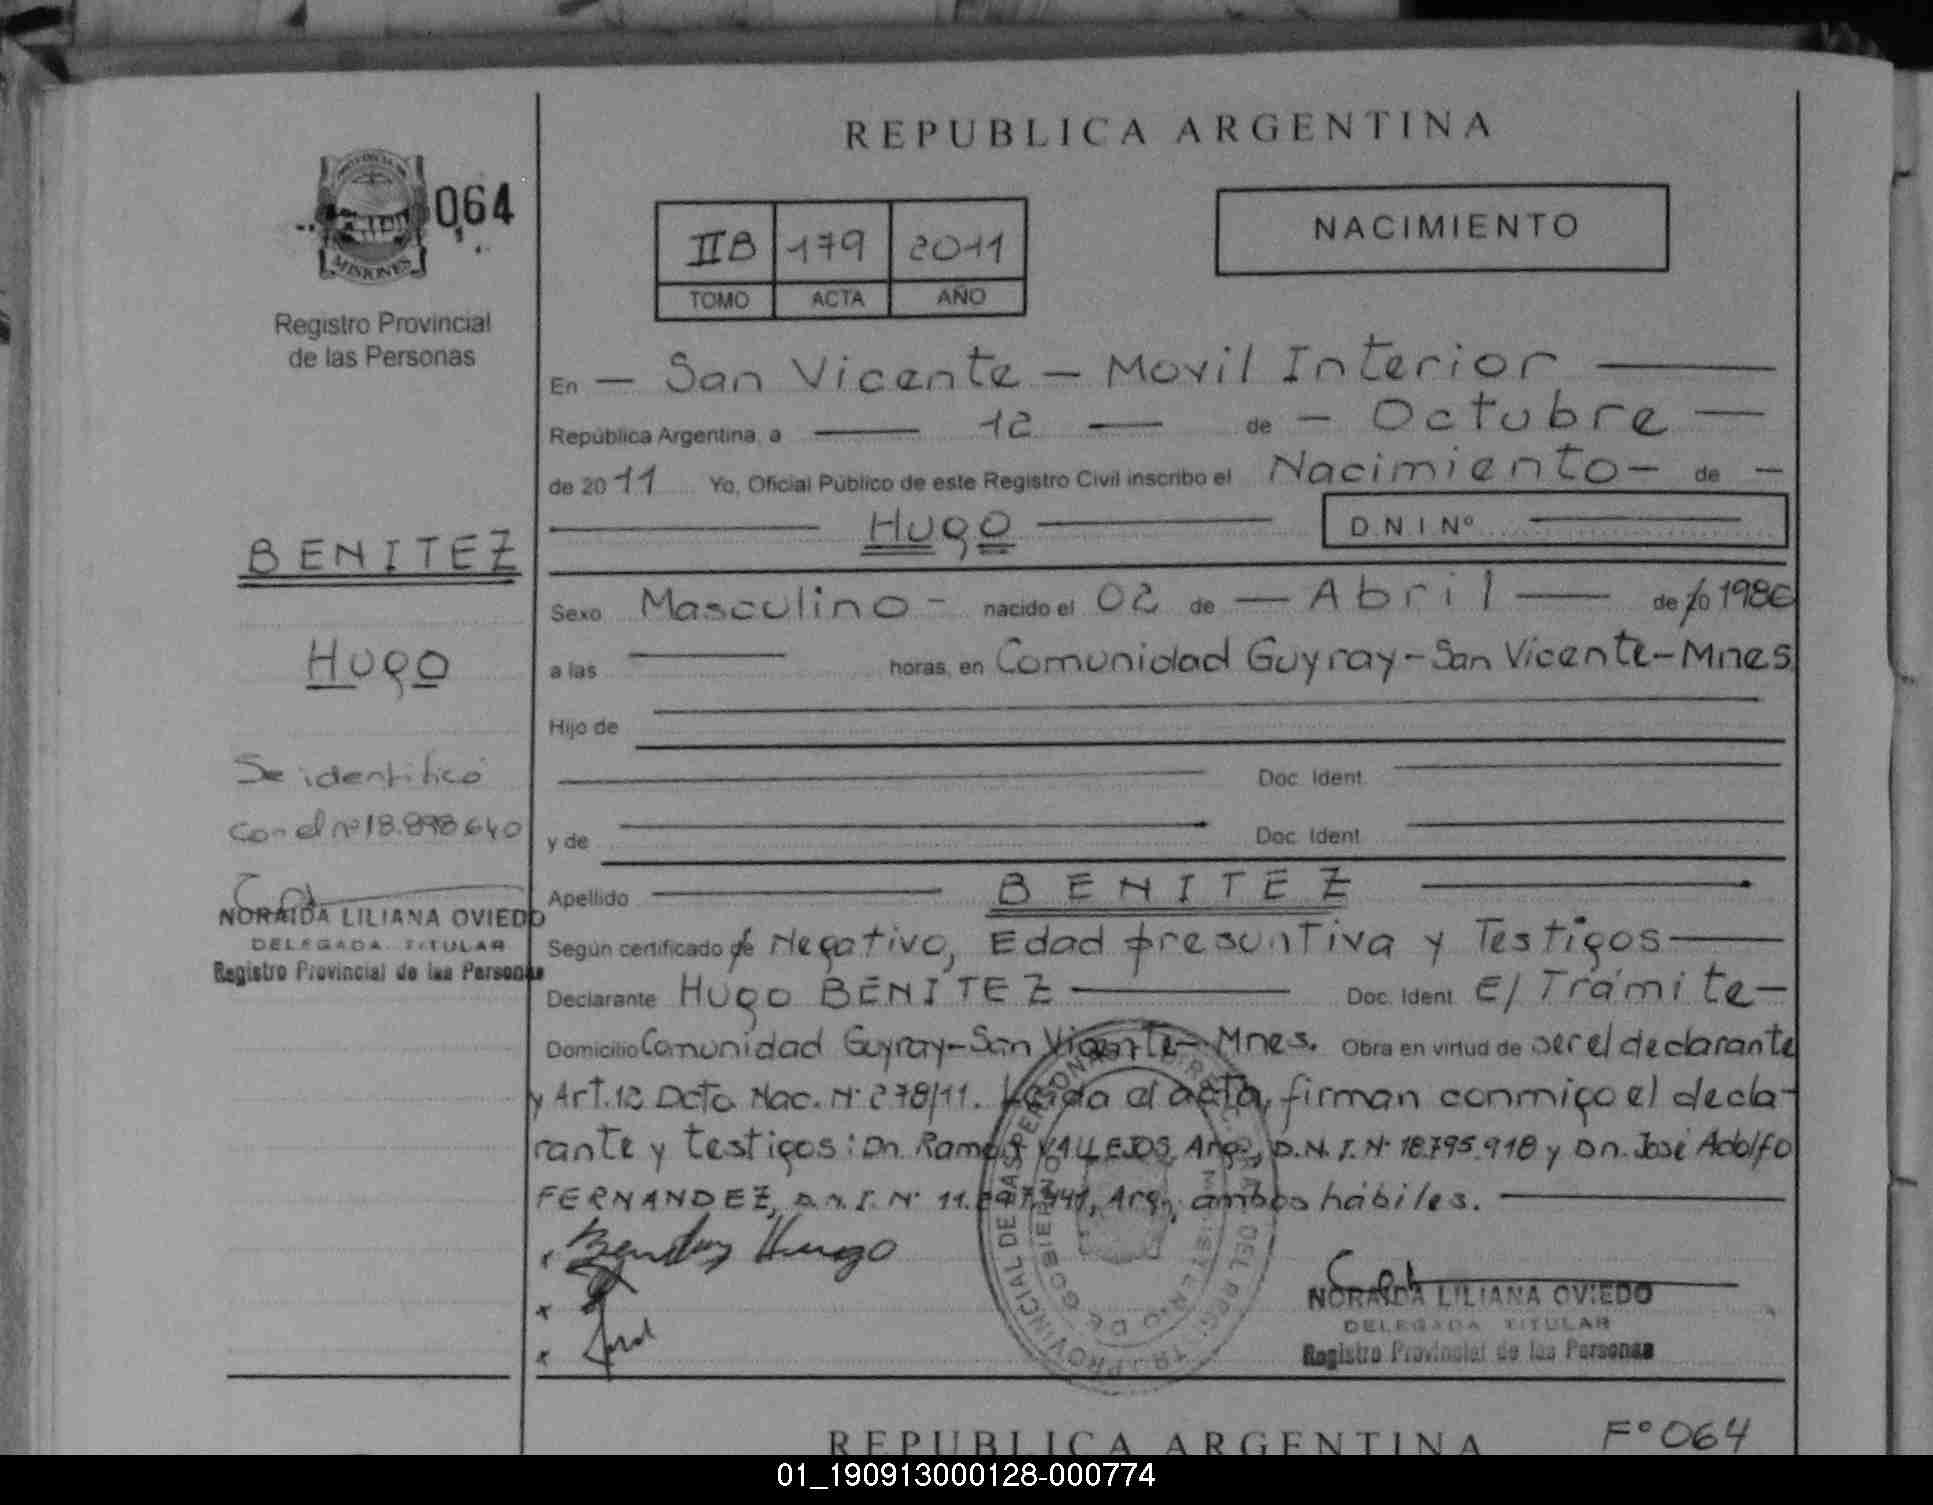 REPUBLICA ARGENTINA
PROVINCIA DE
MISIONES
064
Registro Provincial
de las Personas
IIB 179 2011
TOMO ACTA AÑO
NACIMIENTO
En — San Vicente — Movil Interior —
República Argentina, a — 12 — de — Octubre —
de 2011 Yo, Oficial Público de este Registro Civil inscribo el Nacimiento — de —
— Hugo — D.N.I.Nº —
BENITEZ
Hugo
Se identificó
con el nº 18.898.640
NORAIDA LILIANA OVIEDO
DELEGADA TITULAR
Registro Provincial de las Personas
Sexo Masculino - nacido el 02 de — Abril — de 1986
a las — horas, en Comunidad Guyray - San Vicente - Mnes
Hijo de —
— Doc. Ident. —
y de — Doc. Ident. —
Apellido — BENITEZ —
Según certificado de Negativo, Edad presuntiva y Testigos —
Declarante Hugo BENITEZ — Doc. Ident. E/ Trámite —
Domicilio Comunidad Guyray - San Vicente - Mnes. Obra en virtud de ser el declarante
y Art. 12 Dcto Nac. Nº 278/11. Leida el acta, firman conmigo el decla-
rante y testigos: Dn. Ramón VALLEJOS, Arg., D.N.I. Nº 18.795.918 y Dn. José Adolfo
FERNANDEZ, D.N.I. Nº 11. Arg., ambos hábiles. —
Benitez Hugo
NORAIDA LILIANA OVIEDO
DELEGADA TITULAR
Registro Provincial de las Personas
REPUBLICA ARGENTINA
Fº 064
01_190913000128-000774